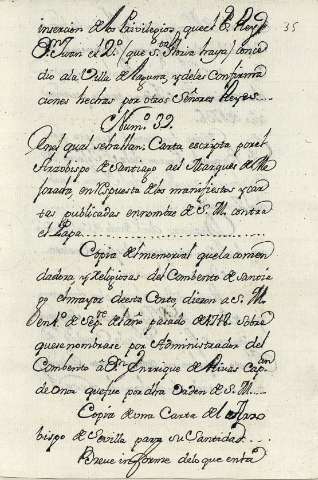 35
insercion de los Privilegios, que el S.r Rey
D.n Juan el 2.º (que S.ta Gloria haya) conce
dio a la Villa de Laguna, y de las Confirma
ciones hechas por otros Señores Reyes
Num.º 39.
En el qual se hallan: Carta escripta por el
Arzobispo de Santiago a el Marques de Me
jorada, en respuesta de los manifiestos y car
tas publicadas en nombre de S. M. contra
el Papa
Copia de el memorial que la comen
dadora y Religiosas del Combento de Santia
go el mayor de esta Corte, dieron a S. M.
en 1.º de Sep.re de el año pasado de 1712 sobre
que se nombrase por Administrador del
Combento a D.n Enrique de Rivas Cap.an
de onor que fue por otra Orden de S. M.
Copia de una Carta de el Arzo
bispo de Sevilla para su Santidad
Breve informe de lo que en tra